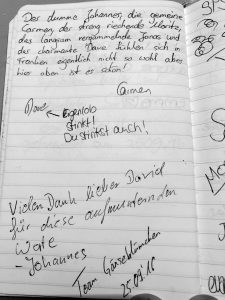 Der dumme Johannes, die gemeine
Carmen, der streng riechende Moritz,
des langsam vergammelnde Jonas und
der charmante Dave fühlen sich in
Franken eigentlich nicht so wohl aber
hier oben ist es schön!
Carmen
Dave
Eigenlob
stinkt!
Du stinkst auch!
Vielen Dank lieber David
für diese aufmunternden
Worte
- Johannes
Team Gänseblümchen
25.09.16